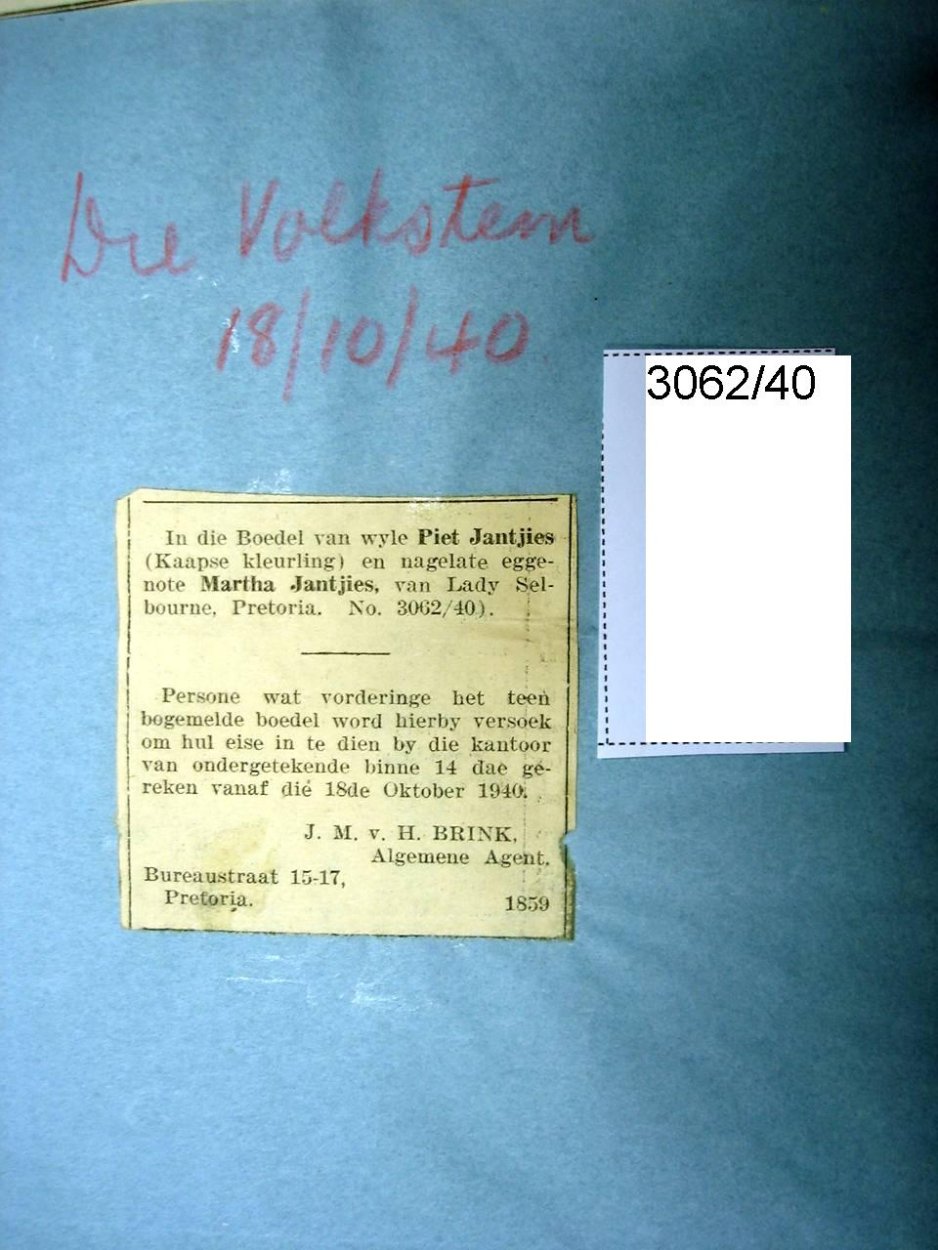 Die Volkstem
18/10/40
3062/40
In die Boedel van wyle Piet Jantjies
(Kaapse kleurling) en nagelate egge-
note Martha Jantjies, van Lady Sel-
bourne, Pretoria. No. 3062/40).
Persone wat vorderinge het teen
bogemelde boedel word hierby versoek
om hul eise in te dien by die kantoor
van ondergetekende binne 14 dae ge-
reken vanaf dié 18de Oktober 1940.
J. M. v. H. BRINK,
Algemene Agent.
Bureaustraat 15-17,
Pretoria. 1859